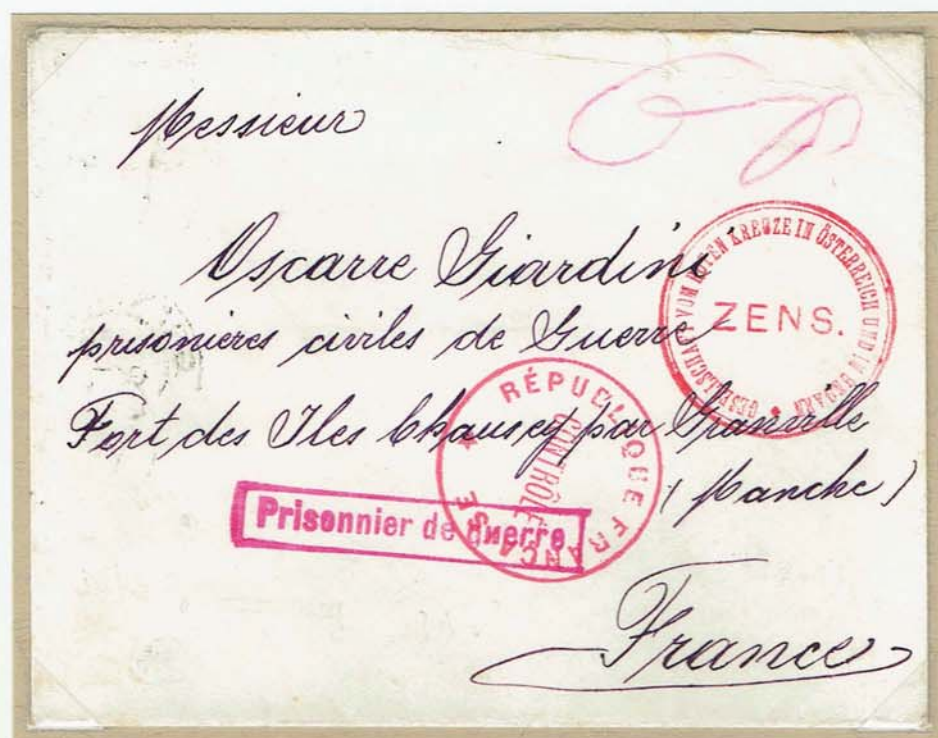 Messieur
Oscarre Giardini
prisonieres civiles de Guerre
Fort des Iles Chausey par Granville
(Manche)
France
GESELLSCHAFT VOM ROTEN KREUZE IN ÖSTERREICH UND IN UNGARN
ZENS.
RÉPUBLIQUE FRANCAISE
CONTRÔLE
Prisonnier de Guerre